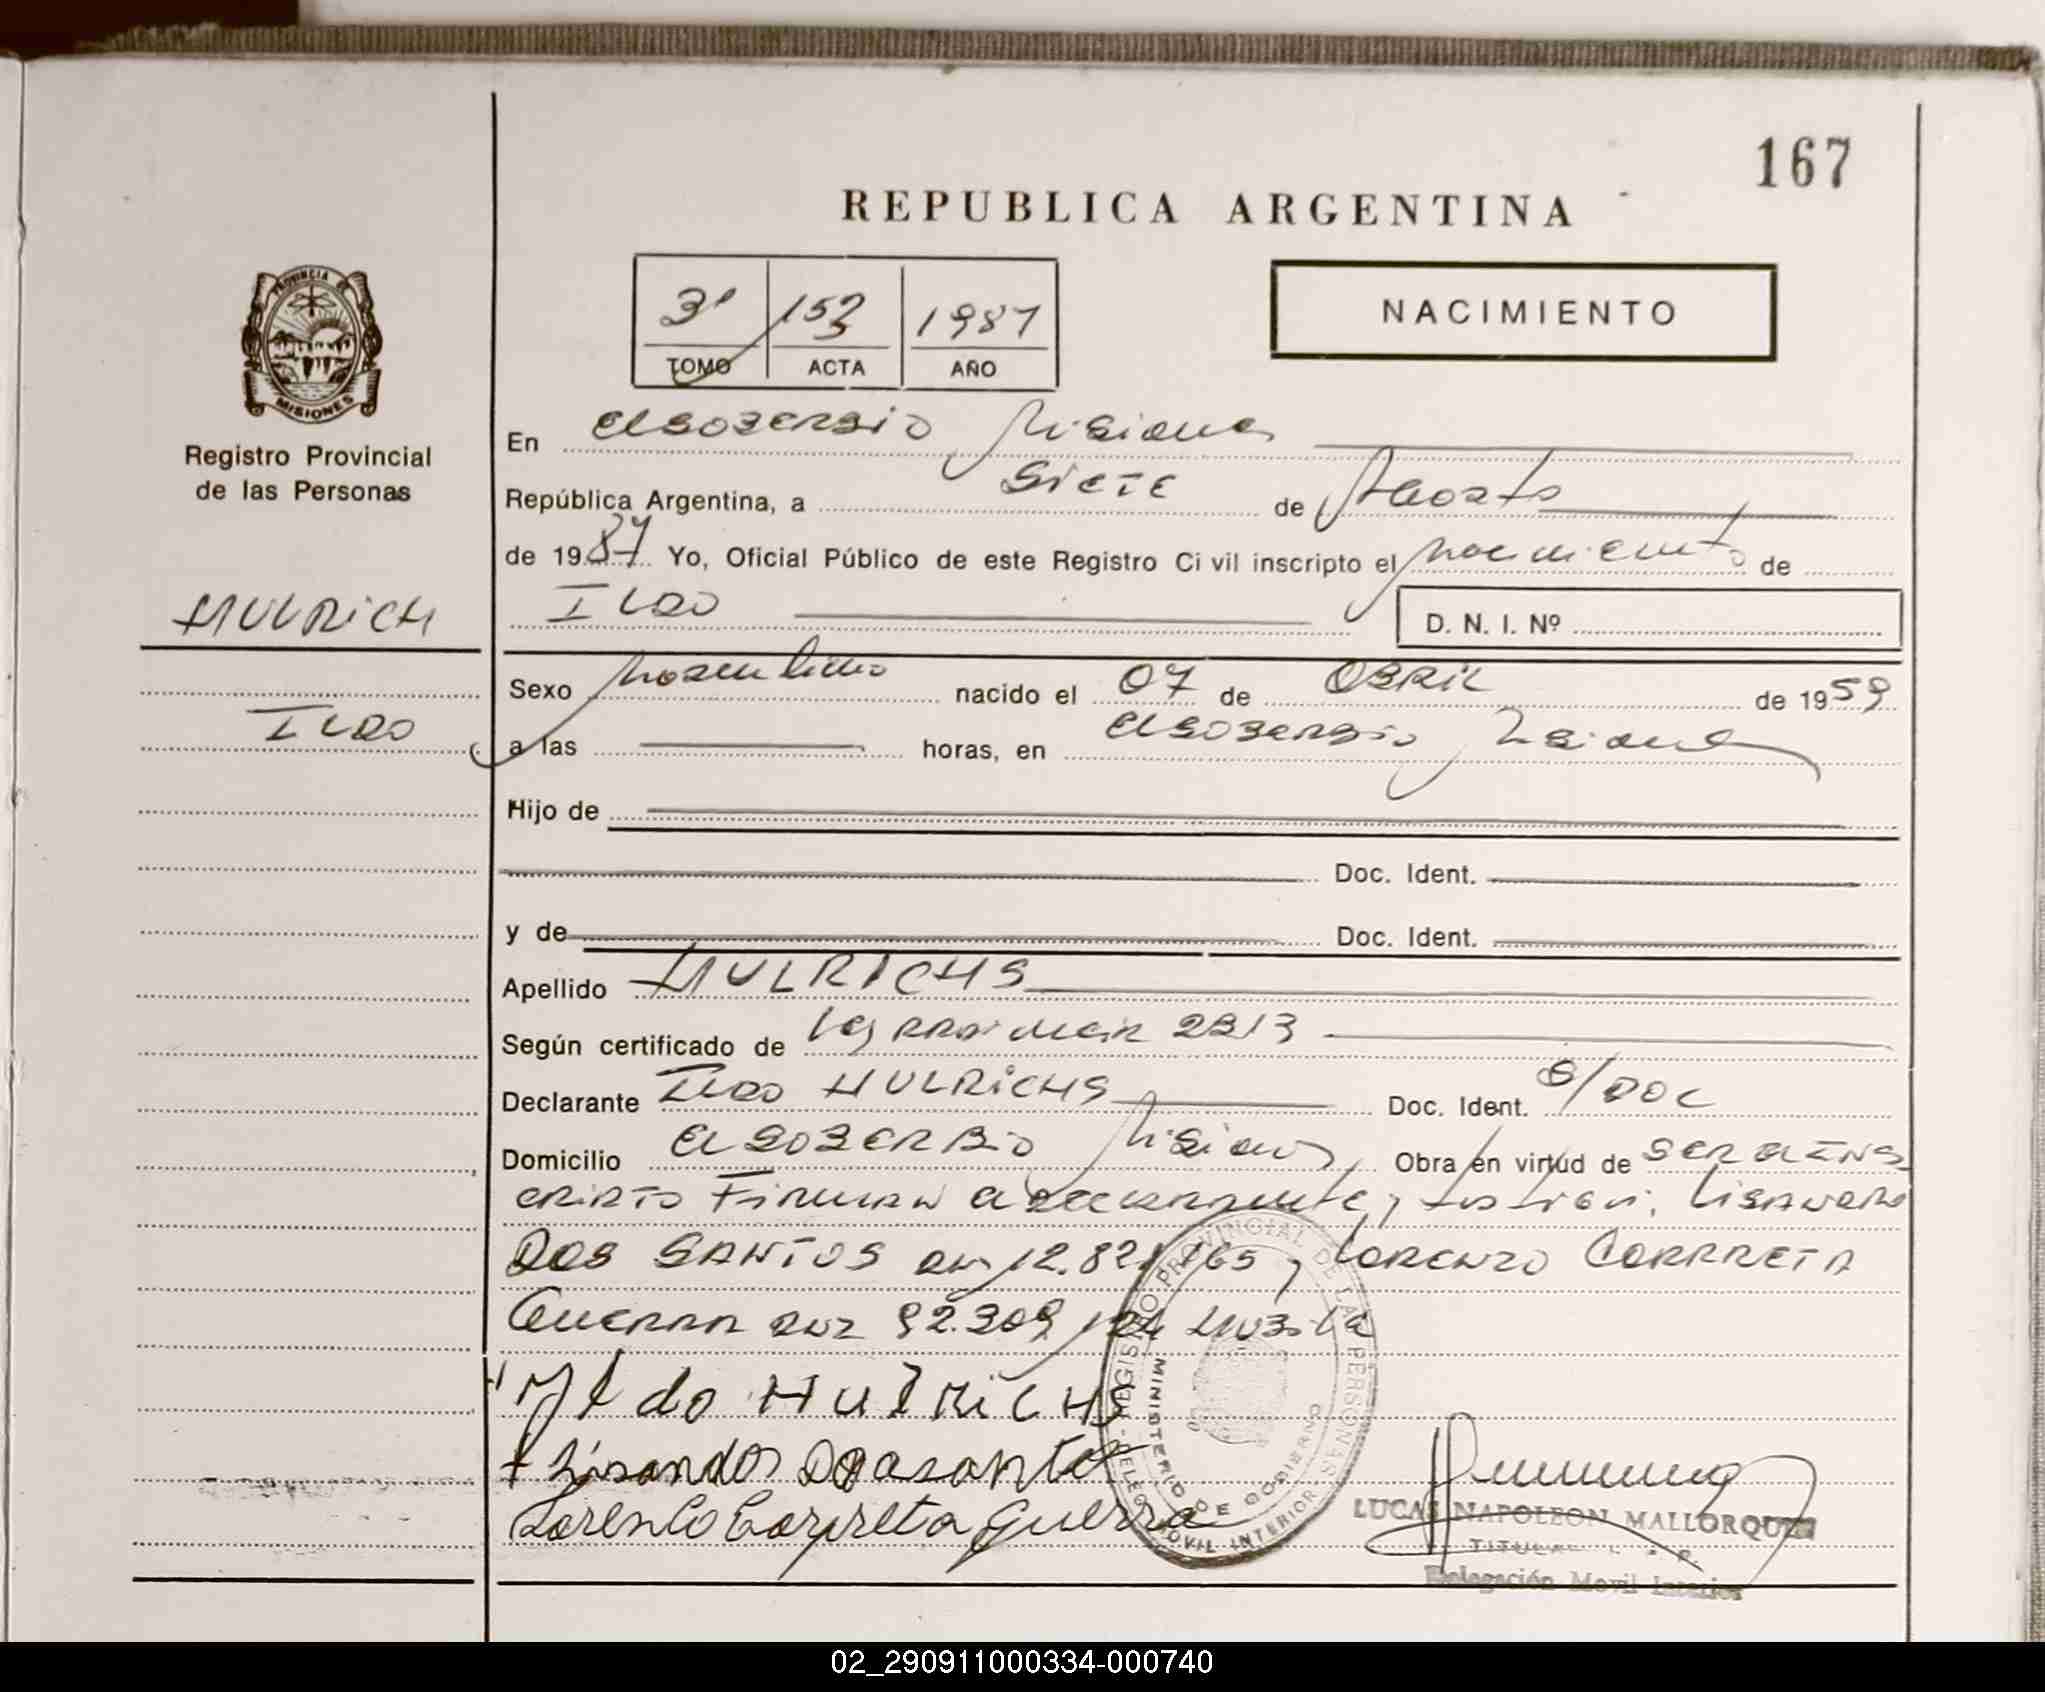 167
REPUBLICA ARGENTINA
3º 153 1987
TOMO ACTA AÑO
NACIMIENTO
PROVINCIA DE
MISIONES
Registro Provincial
de las Personas
HULRICH
ILDO
En El Soberbio Misiones
República Argentina, a SIETE de Agosto
de 1987 Yo, Oficial Público de este Registro Civil inscripto el nacimiento de
ILDO D. N. I. Nº
Sexo masculino nacido el 07 de ABRIL de 1959
a las horas, en El Soberbio Misiones
Hijo de
Doc. Ident.
y de Doc. Ident.
Apellido HULRICHS
Según certificado de 2213
Declarante Ildo HULRICHS Doc. Ident. S/DOC
Domicilio El SOBERBIO Misiones Obra en virtud de SER EL INS
CRIPTO Firman el declarante y testigos: LISANDRO
DOS SANTOS 12.821.165 y LORENZO CORRRETA
GUERRA DNI 92.309
Ildo HULRICHS
Lisandos Doasantos
Lorenso Correta Guerra
REGISTRO PROVINCIAL DE LAS PERSONAS
MINISTERIO DE GOBIERNO
MOVIL INTERIOR
LUCAS NAPOLEON MALLORQUIN
TITULAR
Delegación Movil Interior
02_290911000334-000740